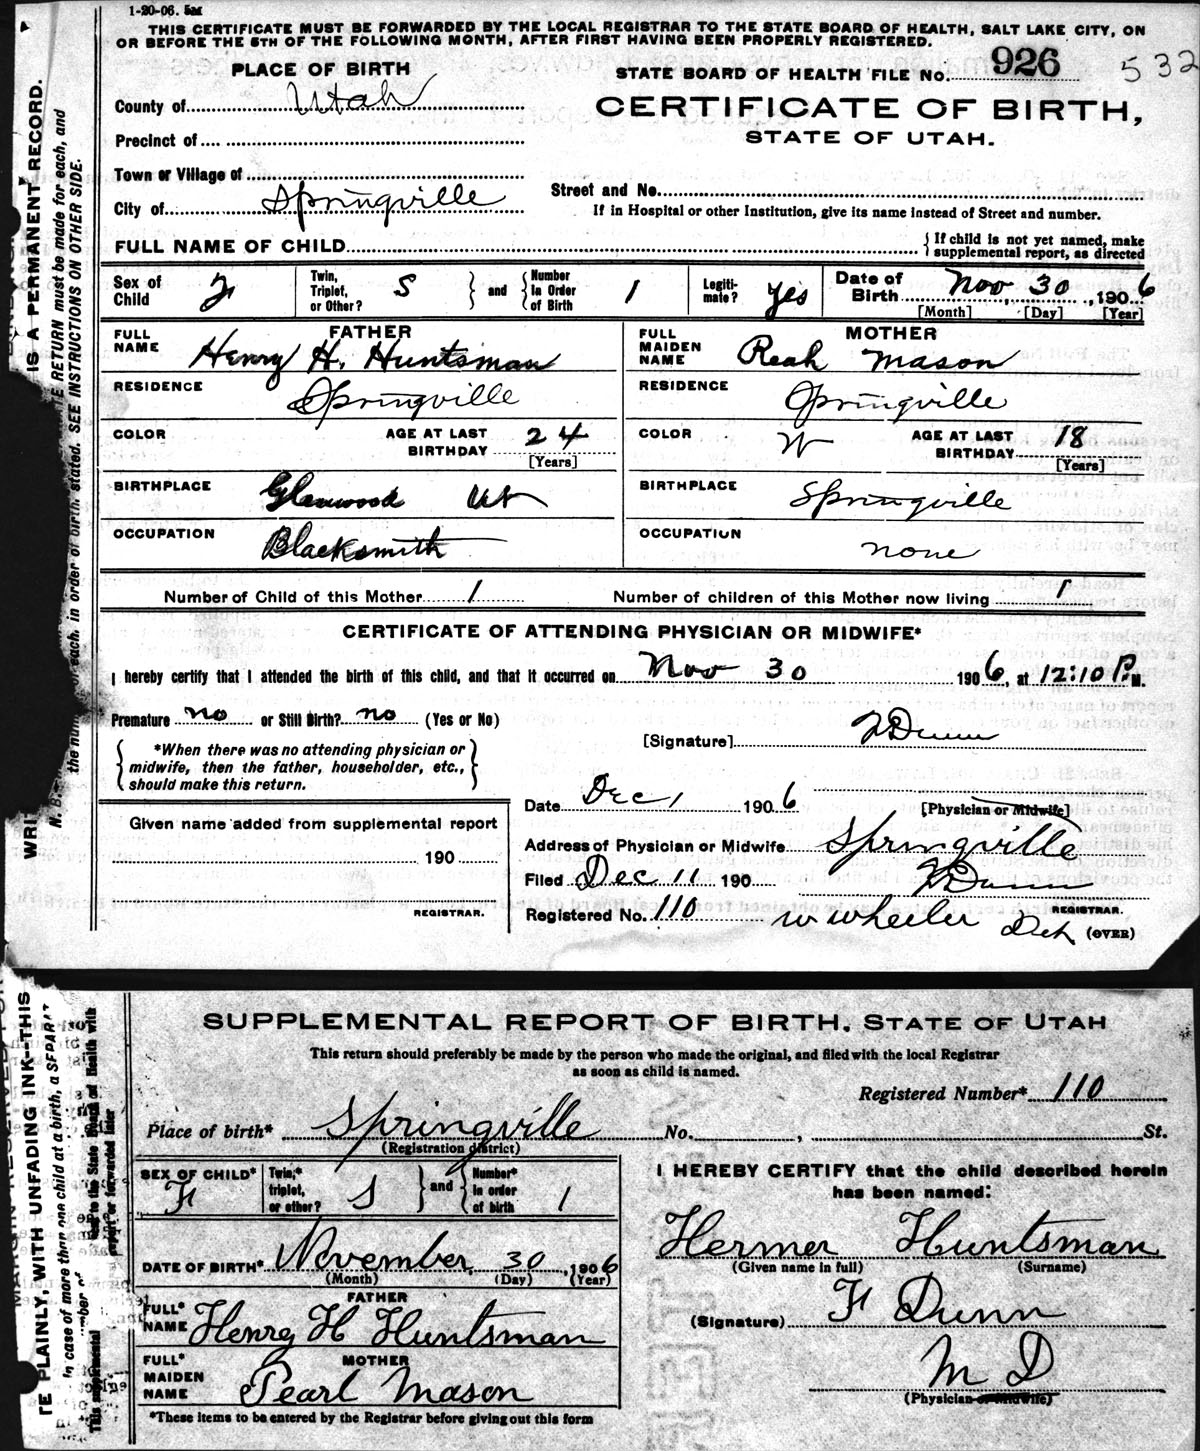 1-20-06. 5M
THIS CERTIFICATE MUST BE FORWARDED BY THE LOCAL REGISTRAR TO THE STATE BOARD OF HEALTH, SALT LAKE CITY, ON
OR BEFORE THE 5TH OF THE FOLLOWING MONTH, AFTER FIRST HAVING BEEN PROPERLY REGISTERED.
PLACE OF BIRTH
STATE BOARD OF HEALTH FILE No. 926 532
County of Utah
CERTIFICATE OF BIRTH,
STATE OF UTAH.
Precinct of
Town or Village of
Street and No.
City of Springville
If in Hospital or other Institution, give its name instead of Street and number.
FULL NAME OF CHILD { If child is not yet named, make
supplemental report, as directed
Sex of Child F Twin, Triplet, or Other? S } and { Number In Order of Birth 1 Legiti-mate? yes Date of Birth Nov 30, 1906
[Month] [Day] [Year]
FATHER
FULL NAME Henry H. Huntsman
MOTHER
FULL MAIDEN NAME Reah Mason
RESIDENCE Springville
RESIDENCE Springville
COLOR AGE AT LAST BIRTHDAY 24 [Years]
COLOR W AGE AT LAST BIRTHDAY 18 [Years]
BIRTHPLACE Glenwood Ut
BIRTHPLACE Springville
OCCUPATION Blacksmith
OCCUPATION none
Number of Child of this Mother 1 Number of children of this Mother now living 1
CERTIFICATE OF ATTENDING PHYSICIAN OR MIDWIFE*
I hereby certify that I attended the birth of this child, and that it occurred on Nov 30 1906, at 12:10 P.M.
Premature no or Still Birth? no (Yes or No)
[Signature] F Dunn
{ *When there was no attending physician or
midwife, then the father, householder, etc.,
should make this return. }
Date Dec 1 1906
[Physician or Midwife]
Given name added from supplemental report
Address of Physician or Midwife Springville
190
Filed Dec 11 190 F Dunn
REGISTRAR.
REGISTRAR.
Registered No. 110 W Wheeler Deh (OVER)
WRI IS A PERMANENT RECORD.
N. B. TE RETURN must be made for each, and
the num of each, in order of birth, stated. SEE INSTRUCTIONS ON OTHER SIDE.
SUPPLEMENTAL REPORT OF BIRTH, STATE OF UTAH
This return should preferably be made by the person who made the original, and filed with the local Registrar
as soon as child is named.
Registered Number* 110
Place of birth* Springville No. , St.
(Registration district)
SEX OF CHILD* F Twin,* triplet, or other? S } and { Number* in order of birth 1
I HEREBY CERTIFY that the child described herein
has been named:
Hermer Huntsman
(Given name in full) (Surname)
DATE OF BIRTH* November, 30, 1906
(Month) (Day) (Year)
FATHER
FULL* NAME Henry H Huntsman
(Signature) F Dunn
M D
(Physician or Midwife)
MOTHER
FULL* MAIDEN NAME Pearl Mason
*These items to be entered by the Registrar before giving out this form
TE PLAINLY, WITH UNFADING INK--THIS
In case of more than one child at a birth, a SEPARAT